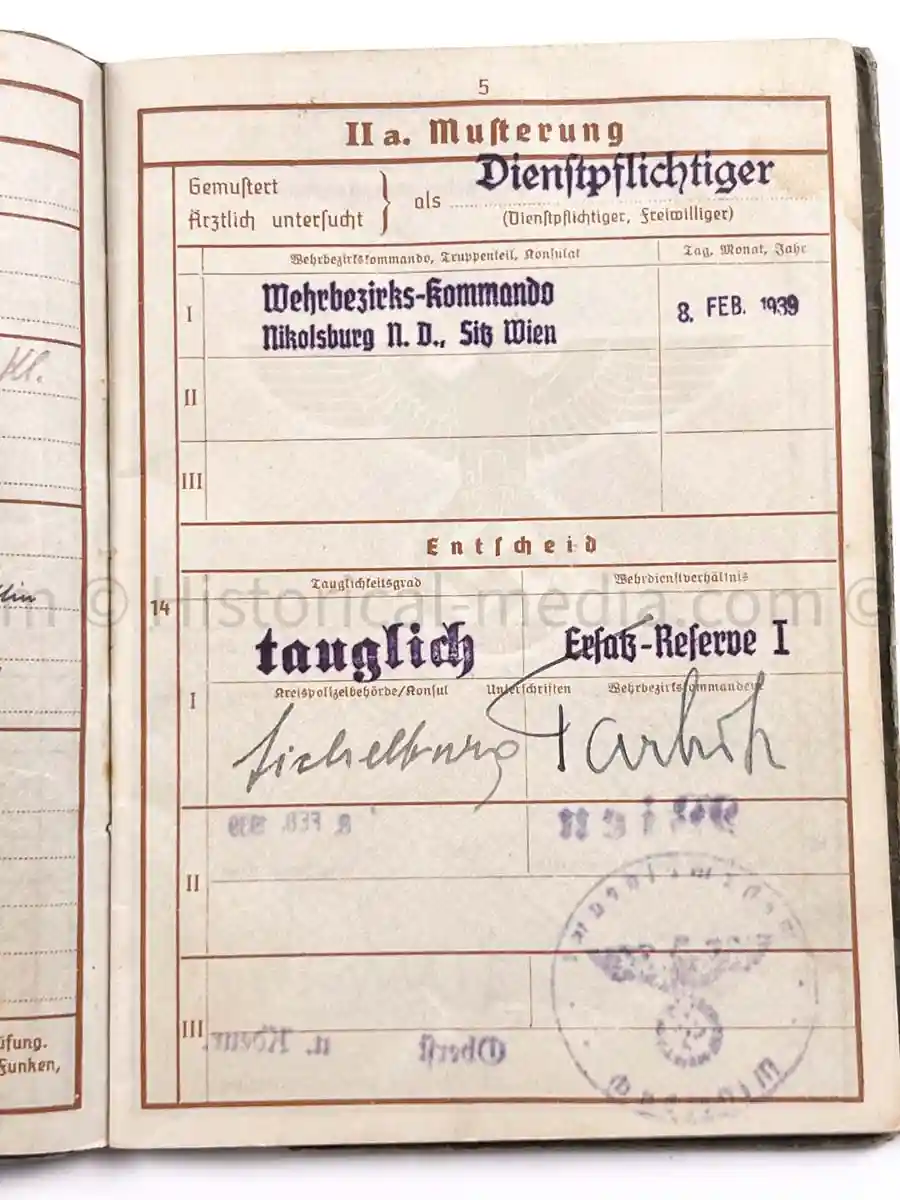 5
II a. Musterung
Gemustert
Ärztlich untersucht } als Dienstpflichtiger
(Dienstpflichtiger, Freiwilliger)
Wehrbezirkskommando, Truppenteil, Konsulat Tag, Monat, Jahr
I Wehrbezirks-Kommando
Nikolsburg N. D., Sitz Wien 8. FEB. 1939
II
III
Entscheid
Tauglichkeitsgrad Wehrdienstverhältnis
14
tauglich Ersatz-Reserve I
I Kreispolizeibehörde/Konsul Unterschriften Wehrbezirkskommandeur
8. FEB. 1939 Wien
II
III Oberst u. Kdeur.
Kl.
üfung.
Funken,
© Historical-media.com ©